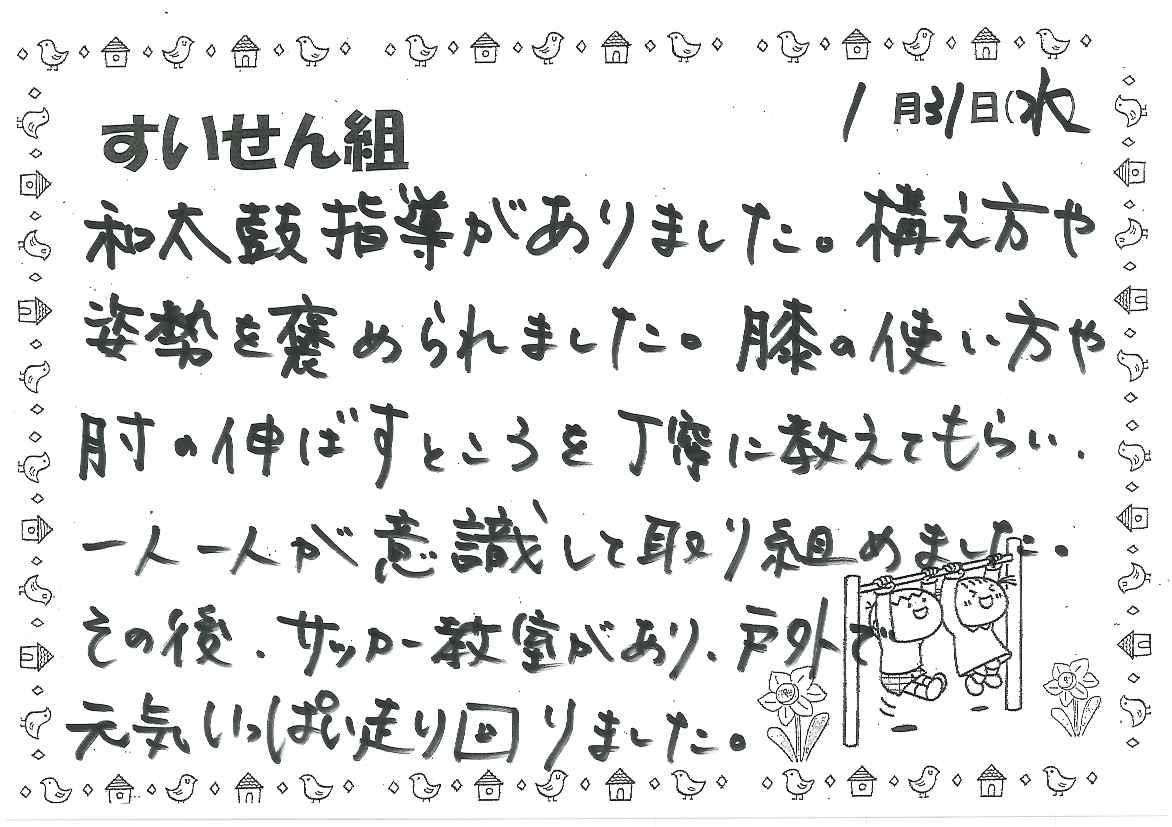 1月31日(水)
すいせん組
和太鼓指導がありました。構え方や
姿勢を褒められました。膝の使い方や
肘の伸ばすところを丁寧に教えてもらい、
一人一人が意識して取り組めました。
その後、サッカー教室があり、戸外で
元気いっぱい走り回りました。